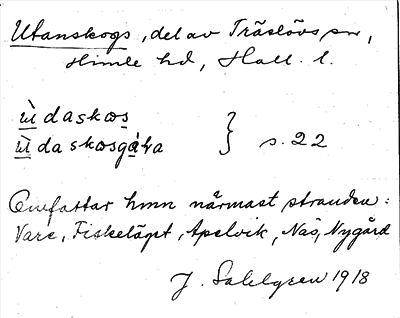 Utanskogs, del av Träslövs sn,
Himle hd, Hall. l.
ùdaskos
ùdaskosgára } s. 22
Omfattar hmn närmast stranden:
Vare, Fiskeläget, Apelvik, Näs, Nygård
J. Sahlgren 1918